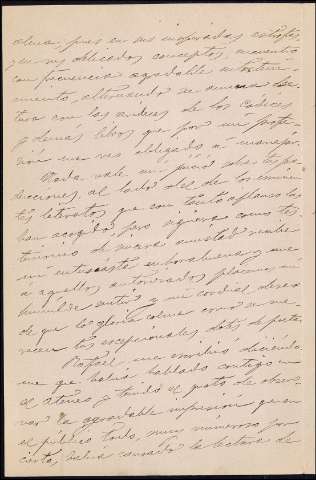 alma pues en sus inspiradas estrofas,
y en sus delicados conceptos, encuentro
con frecuencia agradable entreteni-
miento, alternando su amena lec-
tura con las índices de los Códices
y demas libros que por mi profe-
sion me veo obligado á manejar.
Nada vale mi juicio sobre tus pro-
ducciones, al lado del de los eminen-
tes literatos que con tanto aplauso las
han acogido, pero siquiera como tes-
timonio de nuestra amistad recibe
mi entusiasta enhorabuena, y une
á aquellos autorizados placemes mi
humilde voto y mi cordial deseo
de que la gloria colme como me-
recen tus excepcionales dotes de poeta.
Rafael, me escribió diciendo-
me que habia hablado contigo en
el Ateneo y tenido el gusto de obser-
var la agradable impresion que en
el público todo, muy numeroso por
cierto, habia causado la lectura de